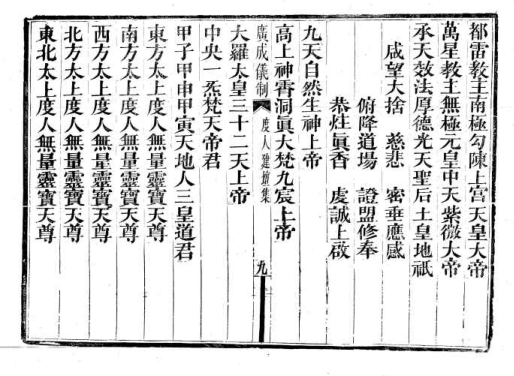 都雷教主南極勾陳上宮天皇大帝
萬星教主無極元皇中天紫微大帝
承天效法厚德光天聖后土皇地祇
咸望大捨　慈悲　密垂應感
俯降道場　證盟修奉
恭炷眞香　虔誠上啟
九天自然生神上帝
高上神霄洞眞大梵九宸上帝
廣成儀制　度人建壇集　九
大羅太皇三十二天上帝
中央一炁梵天帝君
甲子甲申甲寅天地人三皇道君
東方太上度人無量靈寶天尊
南方太上度人無量靈寶天尊
西方太上度人無量靈寶天尊
北方太上度人無量靈寶天尊
東北太上度人無量靈寶天尊